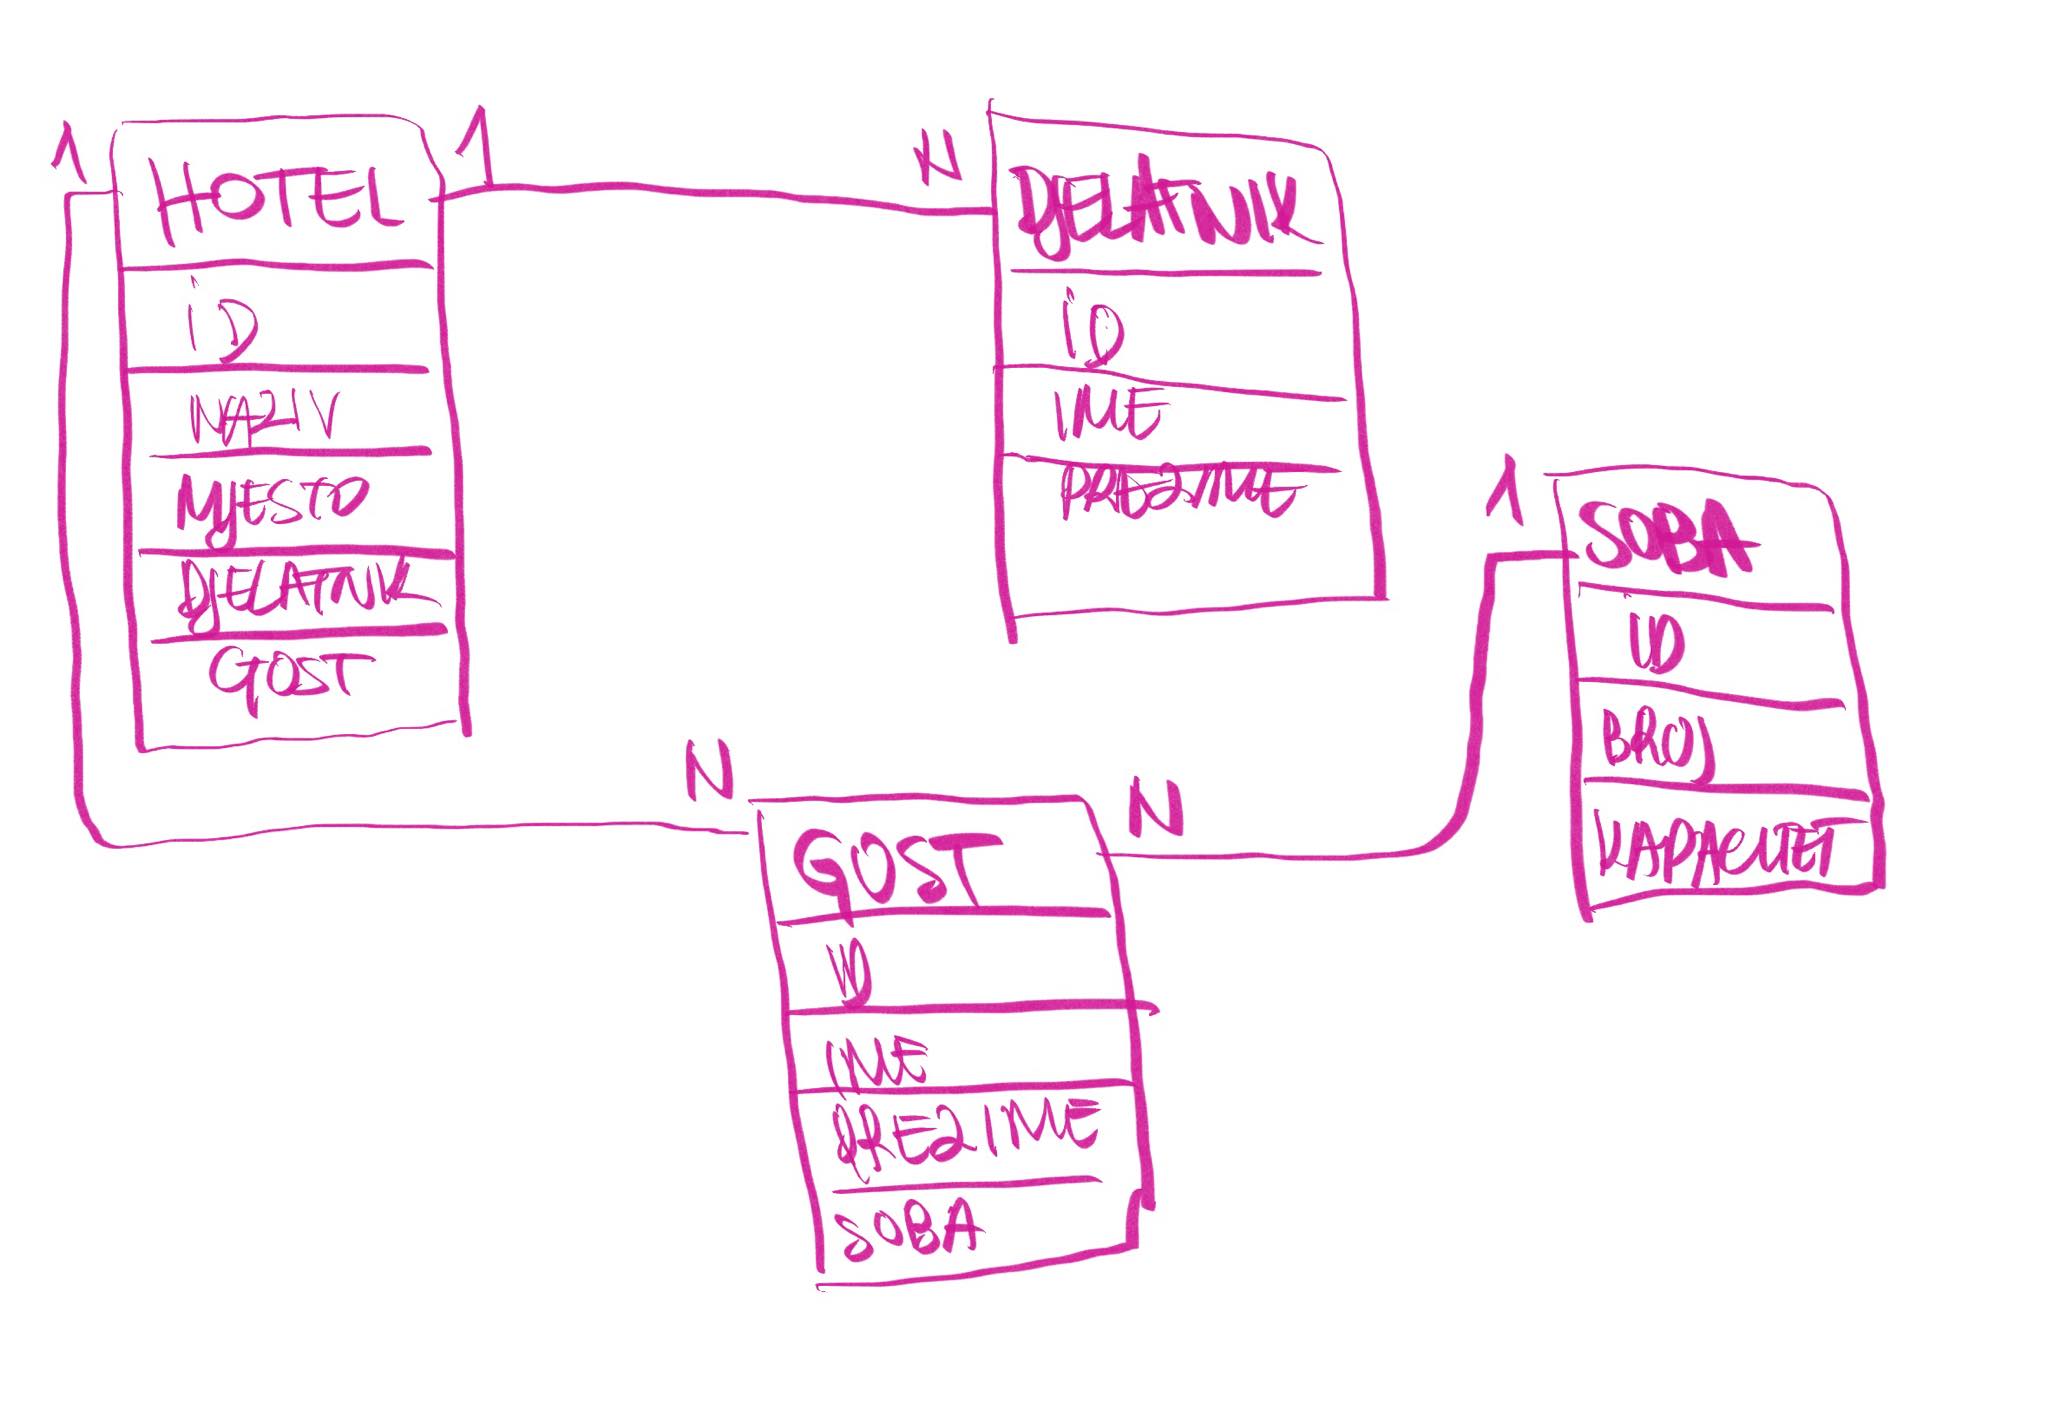 1
HOTEL
1
ID
NAZIV
MJESTO
DJELATNIK
GOST
N
DJELATNIK
ID
IME
PREZIME
1
SOBA
ID
BROJ
KAPACITET
N
GOST
N
ID
IME
PREZIME
SOBA